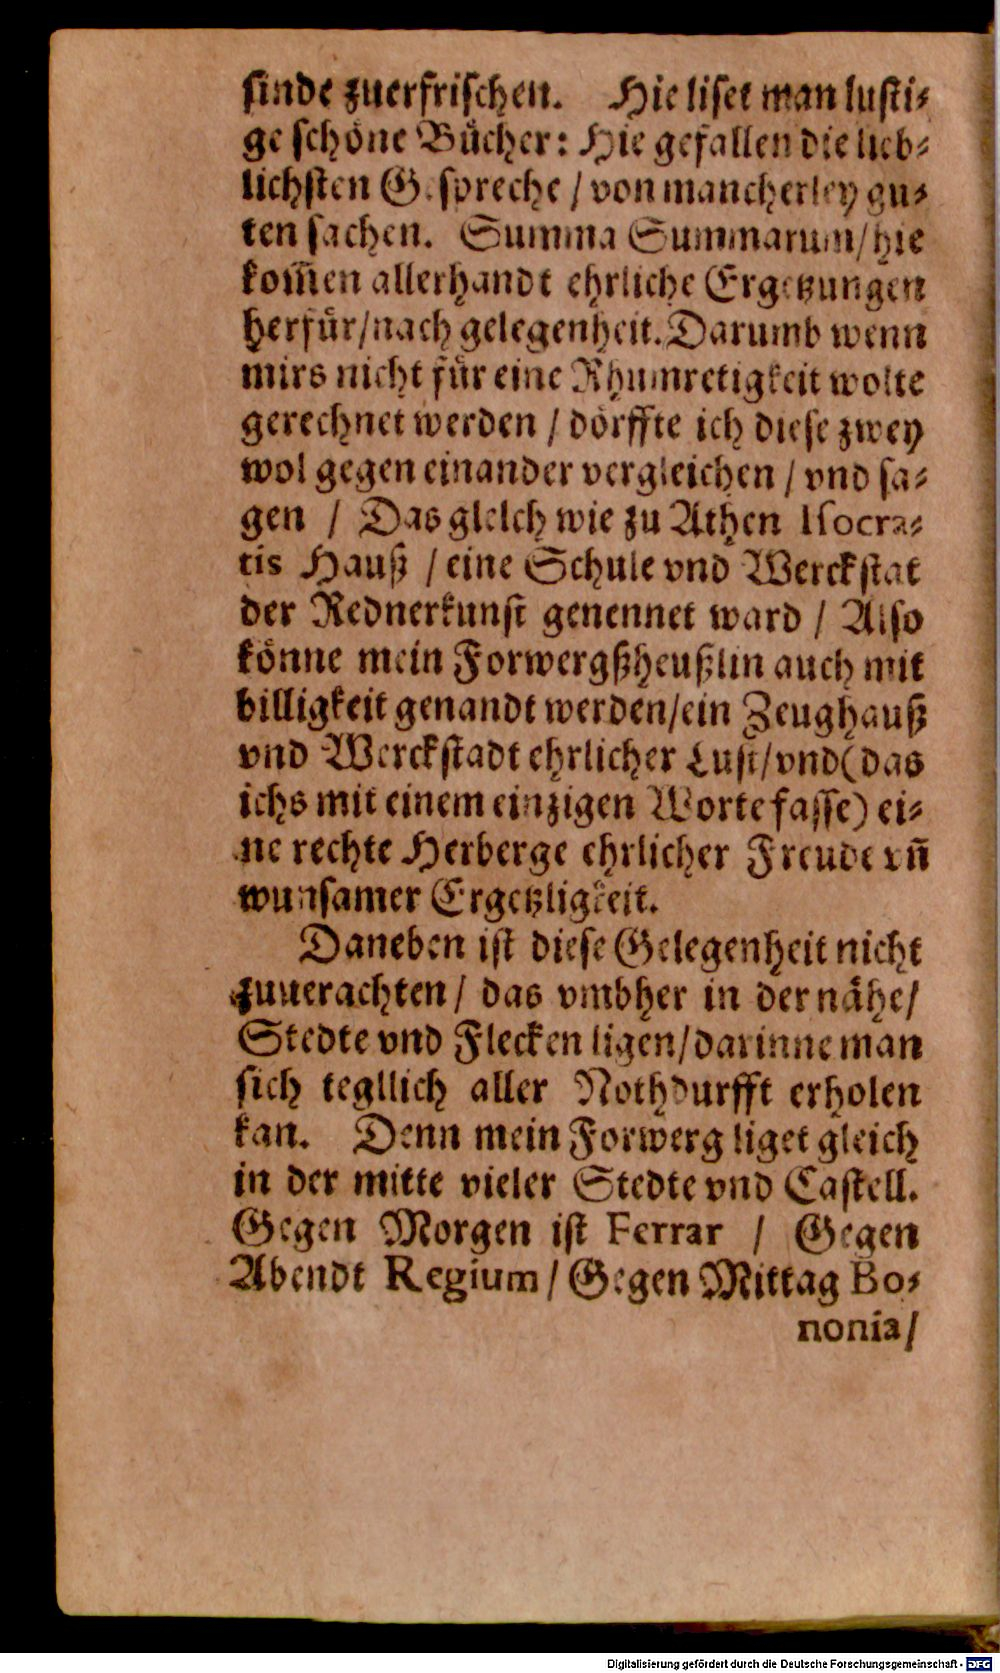 sinde zuerfrischen. Hie liset man lusti-
ge schöne Bücher: Hie gefallen die lieb-
lichsten Gespreche / von mancherley gu-
ten sachen. Summa Summarum/hie
kom̃en allerhandt ehrliche Ergetzungen
herfür/nach gelegenheit. Darumb wenn
mirs nicht für eine Rhumretigkeit wolte
gerechnet werden / dörffte ich diese zwey
wol gegen einander vergleichen / vnd sa-
gen / Das gleich wie zu Athen Isocra-
tis Hauß / eine Schule vnd Werckstat
der Rednerkunst genennet ward / Also
könne mein Forwergßheußlin auch mit
billigkeit genandt werden/ein Zeughauß
vnd Werckstadt ehrlicher Lust/vnd(das
ichs mit einem einzigen Worte fasse) ei-
ne rechte Herberge ehrlicher Freude vñ
wunsamer Ergetzligkeit.
Daneben ist diese Gelegenheit nicht
zuuerachten / das vmbher in der nähe/
Stedte vnd Flecken ligen/darinne man
sich tegllich aller Nothdurfft erholen
kan. Denn mein Forwerg liget gleich
in der mitte vieler Stedte vnd Castell.
Gegen Morgen ist Ferrar / Gegen
Abendt Regium / Gegen Mittag Bo-
nonia/
Digitalisierung gefördert durch die Deutsche Forschungsgemeinschaft - DFG